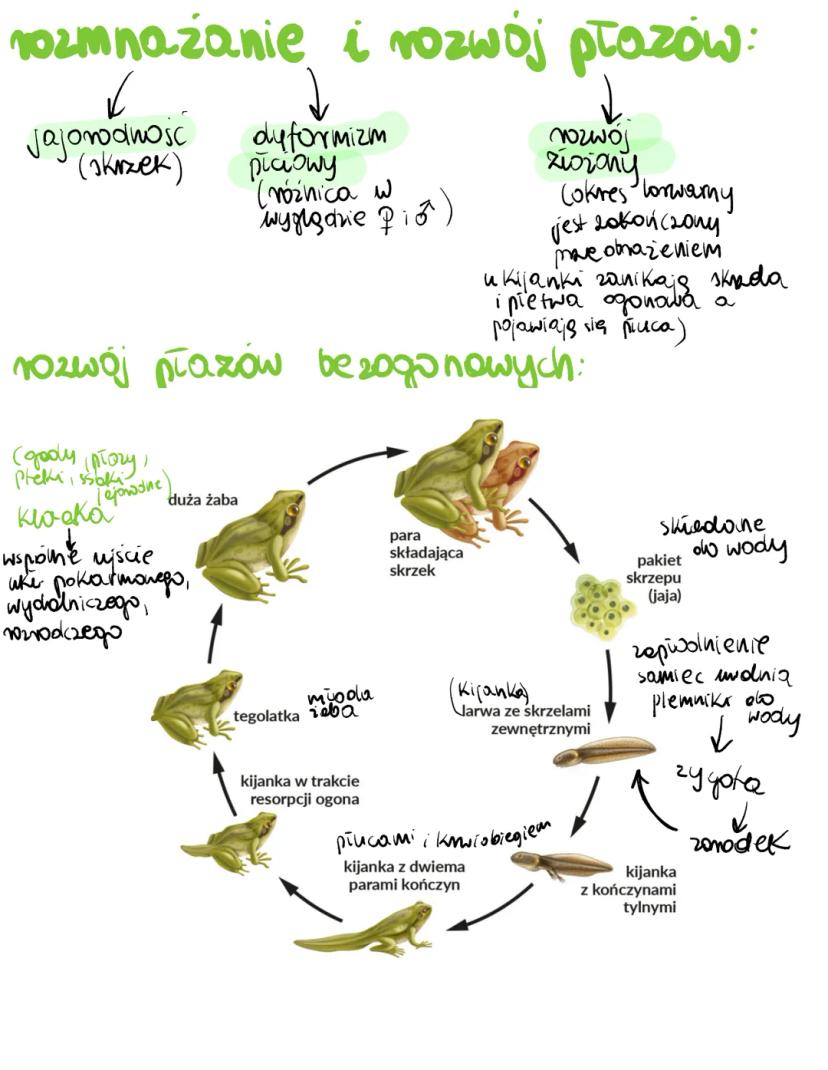 rozmnażanie i rozwój płazów:
jajorodność
(skrzek)
dyformizm
płciowy
(różnica w
wyglądzie ♀ i ♂)
rozwój
złożony
(okres larwarny
jest zakończony
przeobrażeniem
u kijanki zanikają skrzela
i płetwa ogonowa a
pojawiają się płuca)
rozwój płazów bezogonowych:
(gady, płazy,
ptaki, ssaki
(jajorodne)
kloaka
wspólne ujście
ukł pokarmowego,
wydalniczego,
rozrodczego
duża żaba
para
składająca
skrzek
składane
do wody
pakiet
skrzepu
(jaja)
zapłodnienie
samiec uwalnia
plemniki do
wody
zygota
zarodek
(kijanka)
larwa ze skrzelami
zewnętrznymi
kijanka
z kończynami
tylnymi
płucami i krwiobiegiem
kijanka z dwiema
parami kończyn
kijanka w trakcie
resorpcji ogona
tegolatka
młoda
żaba